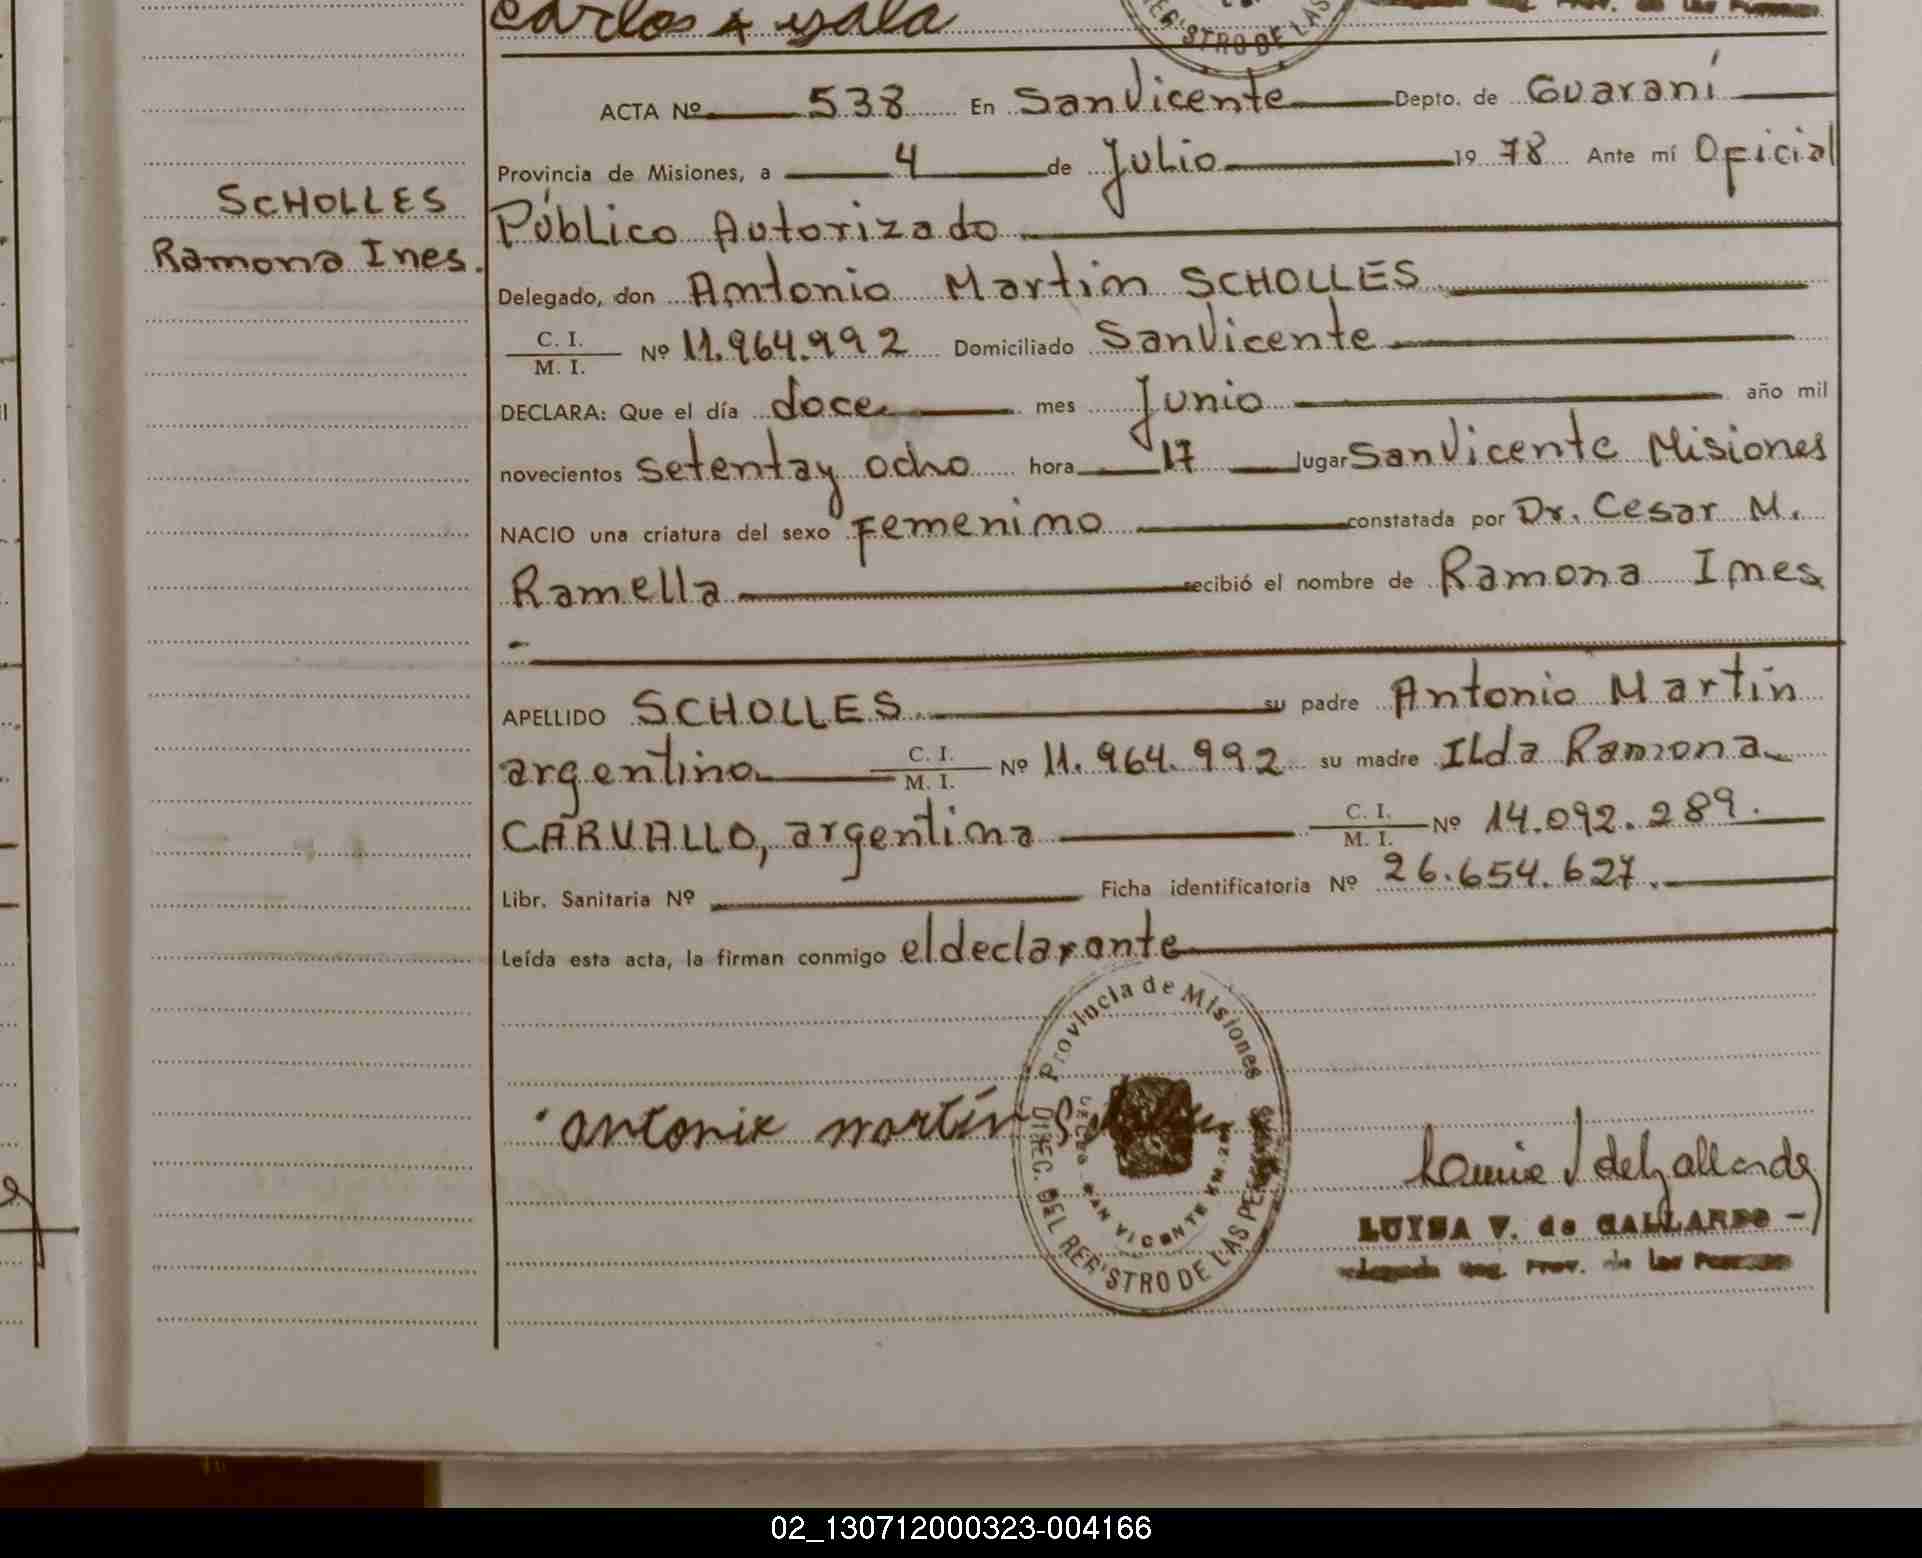 Carlos A yala
REGISTRO DE LAS
ACTA Nº 538 En San Vicente Depto. de Guaraní
Provincia de Misiones, a 4 de Julio 19 78 Ante mí Oficial
Público Autorizado
SCHOLLES
Ramona Ines.
Delegado, don Antonio Martin SCHOLLES
C. I.
M. I. Nº 11.964.992 Domiciliado San Vicente
DECLARA: Que el día doce mes Junio año mil
novecientos setenta y ocho hora 17 lugar San Vicente Misiones
NACIO una criatura del sexo Femenino constatada por Dr. Cesar M.
Ramella recibió el nombre de Ramona Ines
APELLIDO SCHOLLES su padre Antonio Martín
argentino C. I.
M. I. Nº 11.964.992 su madre Ilda Ramona
CARVALLO, argentina C. I.
M. I. Nº 14.092.289.
Libr. Sanitaria Nº Ficha identificatoria Nº 26.654.627.
Leída esta acta, la firman conmigo el declarante
Provincia de Misiones
DIREC. DEL REGISTRO DE LAS PERSONAS
SAN VICENTE KM.
antonio martín
LUISA V. de GALLARDO
Prov. de las Personas
02_130712000323-004166